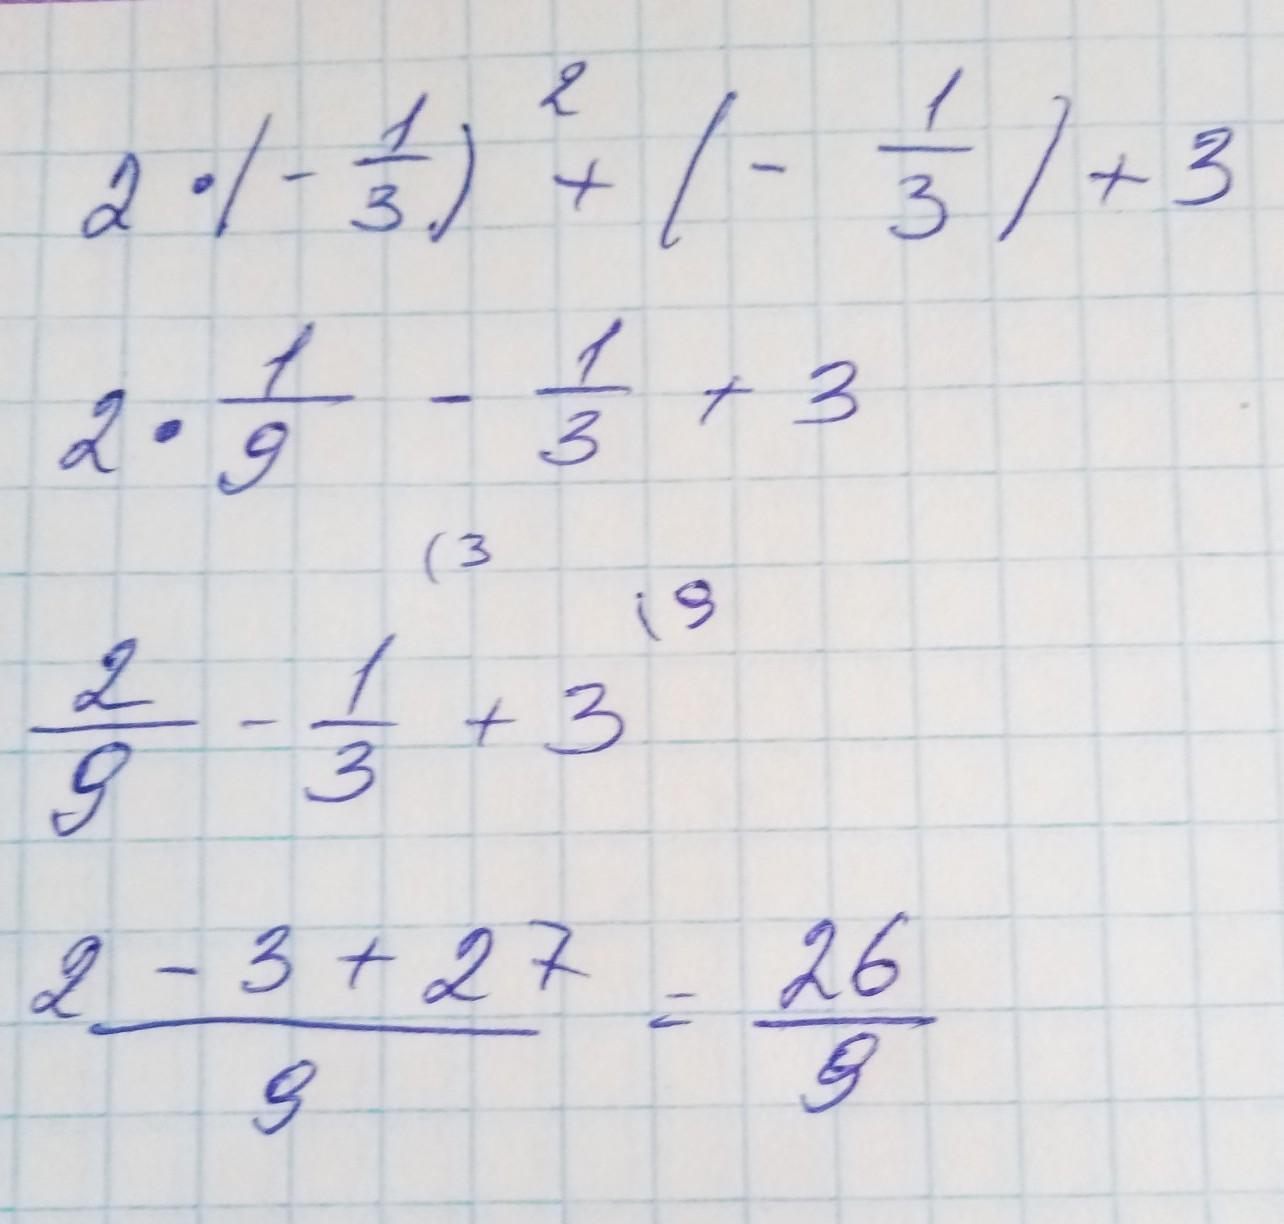 2 · (- 1/3)² + (- 1/3) + 3
2 · 1/9 - 1/3 + 3
(3 (9
2/9 - 1/3 + 3
2 - 3 + 27 / 9 = 26/9